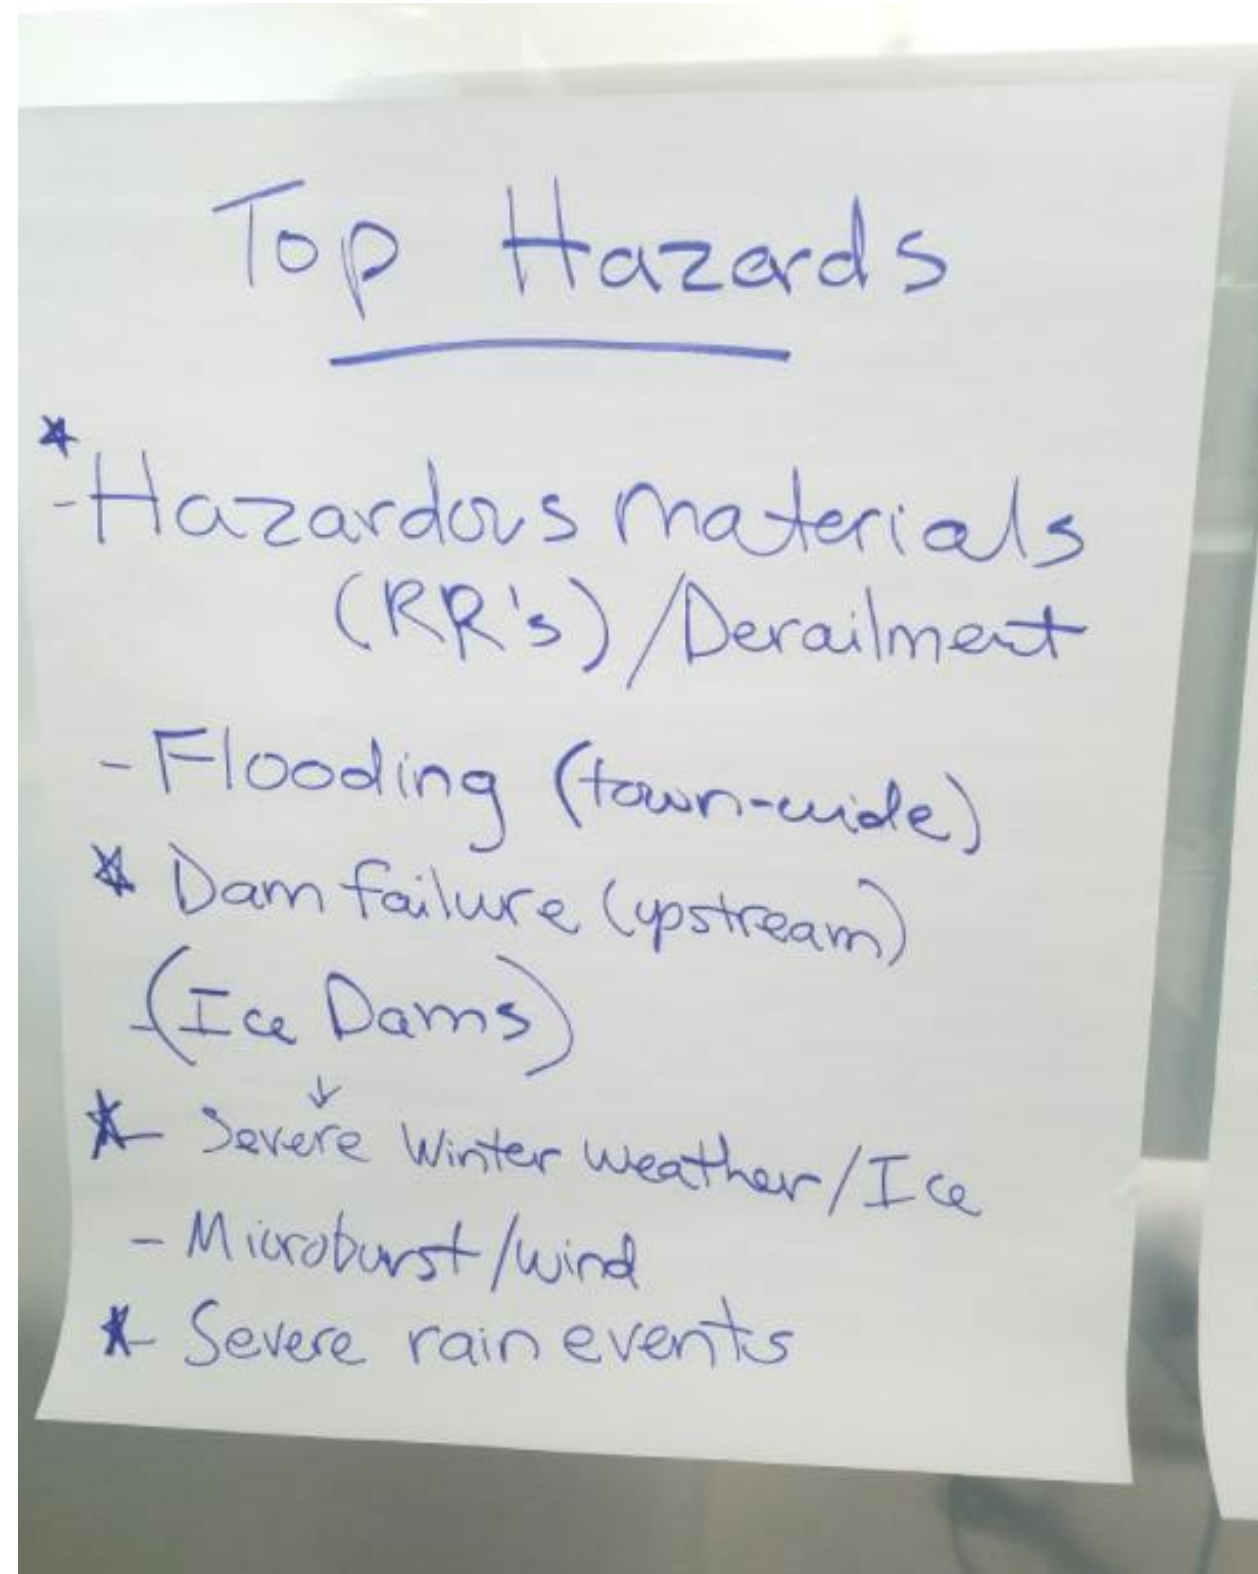 Top Hazards
*
- Hazardous Materials
(RR's) / Derailment
- Flooding (town-wide)
* Dam failure (upstream)
- (Ice Dams)
↓
* - Severe Winter Weather / Ice
- Microburst / wind
* - Severe rain events